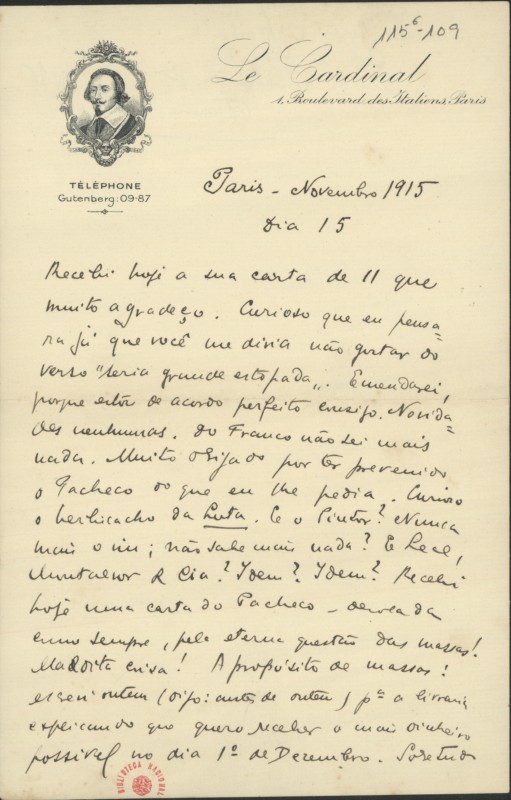 115⁶-109
Le Cardinal
1, Boulevard des Italiens, Paris
TÉLÉPHONE
Gutenberg: 09-87
Paris - Novembro 1915
Dia 15
Recebi hoje a sua carta de 11 que
muito agradeço. Curioso que eu pensa-
ra já que você me diria não gostar do
verso "seria grande estopada". Emendarei,
porque estou de acordo perfeito consigo. Novida-
des nenhumas. Do Franco não sei mais
nada. Muito obrigado por ter prevenido
o Pacheco do que eu lhe pedia. Curioso
o berbicacho da Luta. E o Pintor? Nunca
mais o viu; não sabe mais nada? E Leal,
Montalvor & Cia? Idem? Idem? Recebi
hoje uma carta do Pacheco -
como sempre, pela eterna questão das massas!
Maldita coisa! A propósito de massas:
escrevi ontem (digo: antes de ontem) pª a livraria
explicando que quero receber o mais dinheiro
possivel no dia 1º de Dezembro. Sobretudo
BIBLIOTECA NACIONAL